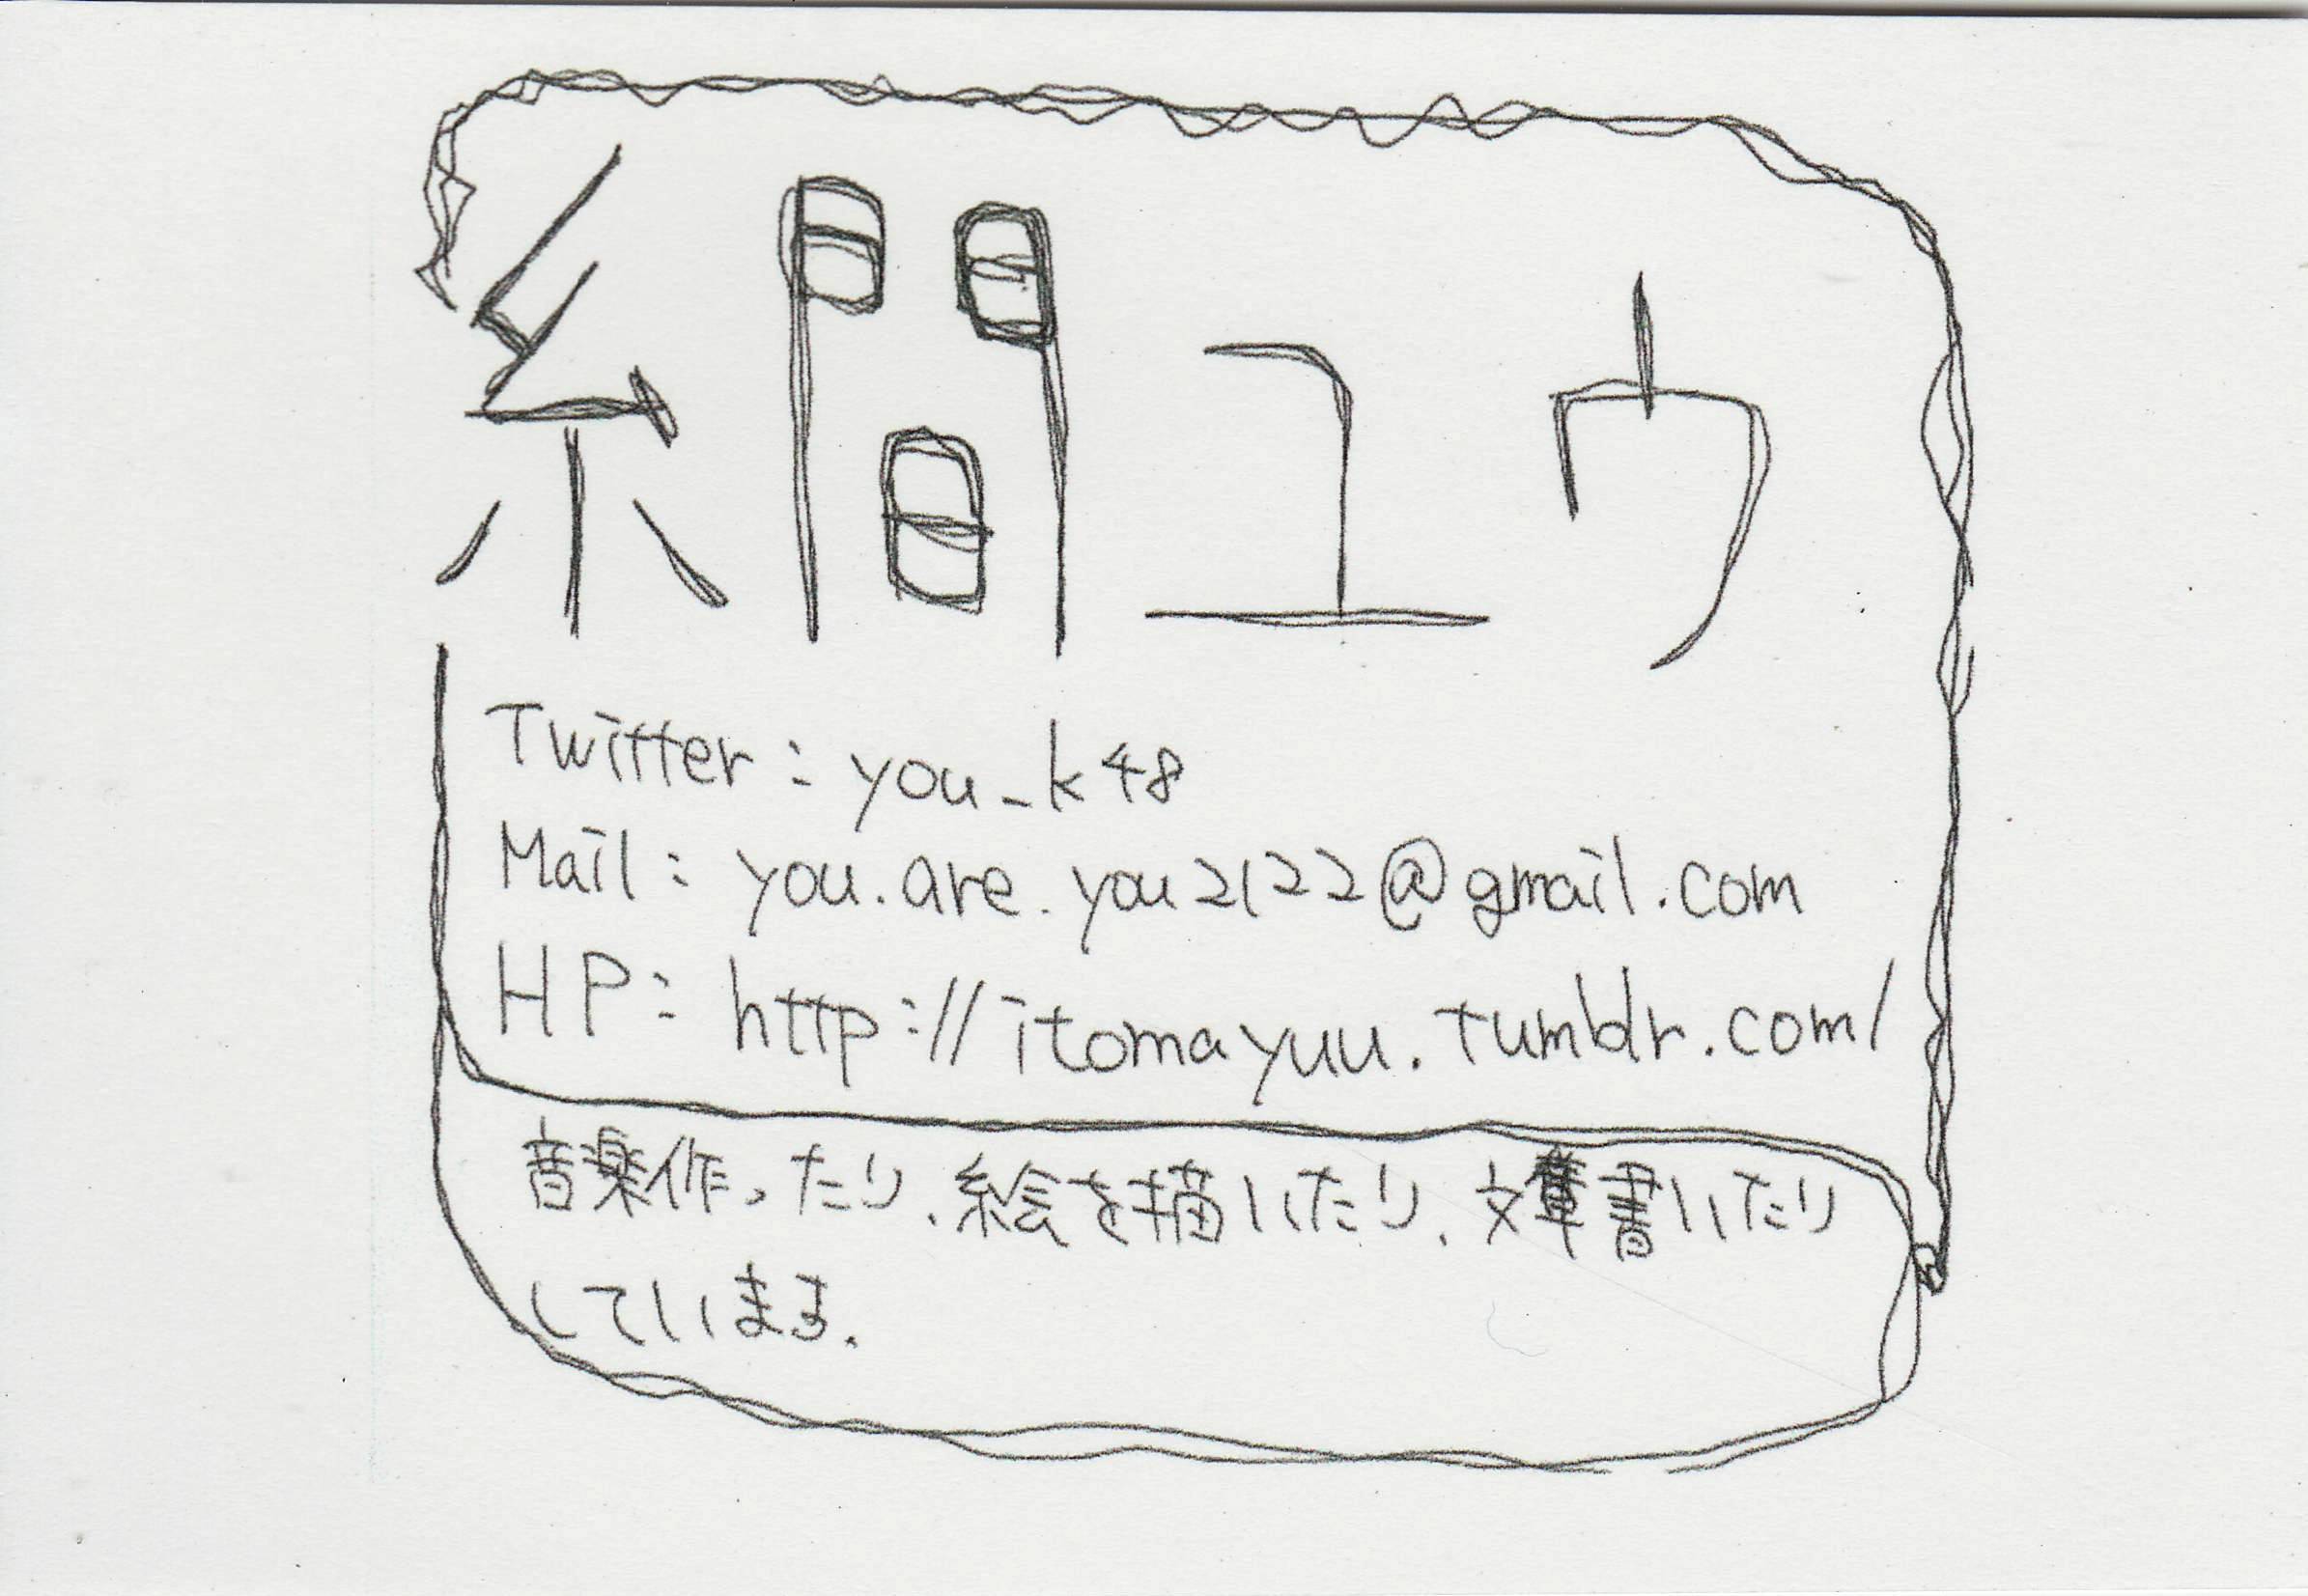 糸間ユウ
Twitter:you_k48
Mail:you.are.you2122@gmail.com
HP:http://itomayuu.tumblr.com/
音楽作ったり、絵を描いたり、文章書いたり
しています。